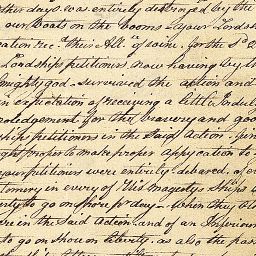 ther days was entirely destroyed by the
our Boats on the booms - your Lords
ation rec.d their All.ce of wine. for the S.d
Lordships petitioners now having by
mighty god - survived the action and
in expectation of receiving a little Indul
nowledgement for the bravery and goo
ships petitioners in the said Action - Sin
ght proper to make proper appycation to
your petitioners were entirely debared, of
timony in every of His Magestys Ships
enty to go on shore pr day - When they
ere in the said Action and of an Inferiour
to go on shore on liberty. as also the pas